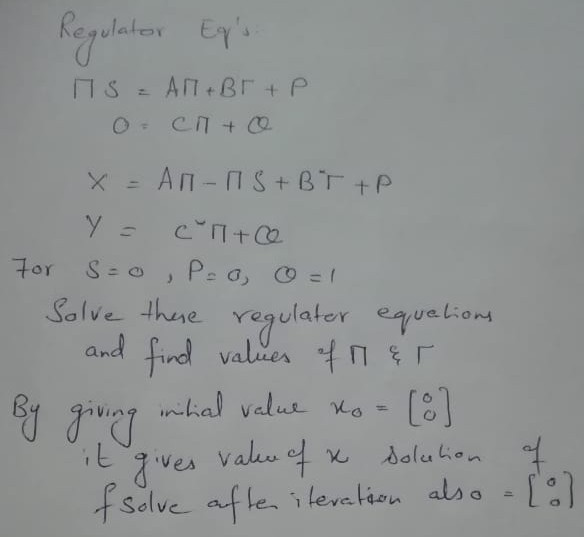 Regulator Eq's:
Π S = AΠ + BΓ + P
O = CΠ + Q
X = AΠ - ΠS + B˘Γ + P
Y = C˘Π + Q
For S=0, P=0, Q=1
Solve these regulator equations
and find values of Π & Γ
By giving initial value x₀ = [0 0]
it gives value of x solution of
fsolve after iteration also = [0 0]